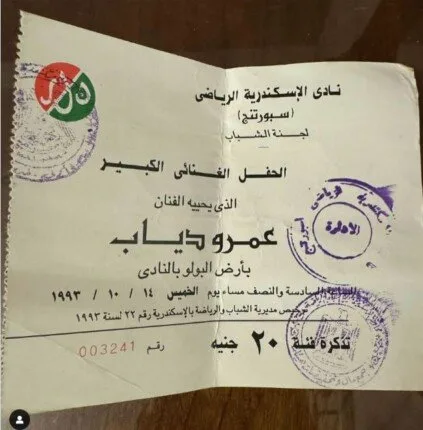 نادى الإسكندرية الرياضى
(سبورتنج)
لجنة الشباب
الحفل الغنائى الكبير
الذى يحييه الفنان
عمرو دياب
بأرض البولو بالنادى
السادسة والنصف مساء يوم الخميس ١٤ / ١٠ / ١٩٩٣
مديرية الشباب والرياضة بالإسكندرية رقم ٢٢ لسنة ١٩٩٣
تذكرة فئة ٢٠ جنيه
رقم 003241
الإدارة